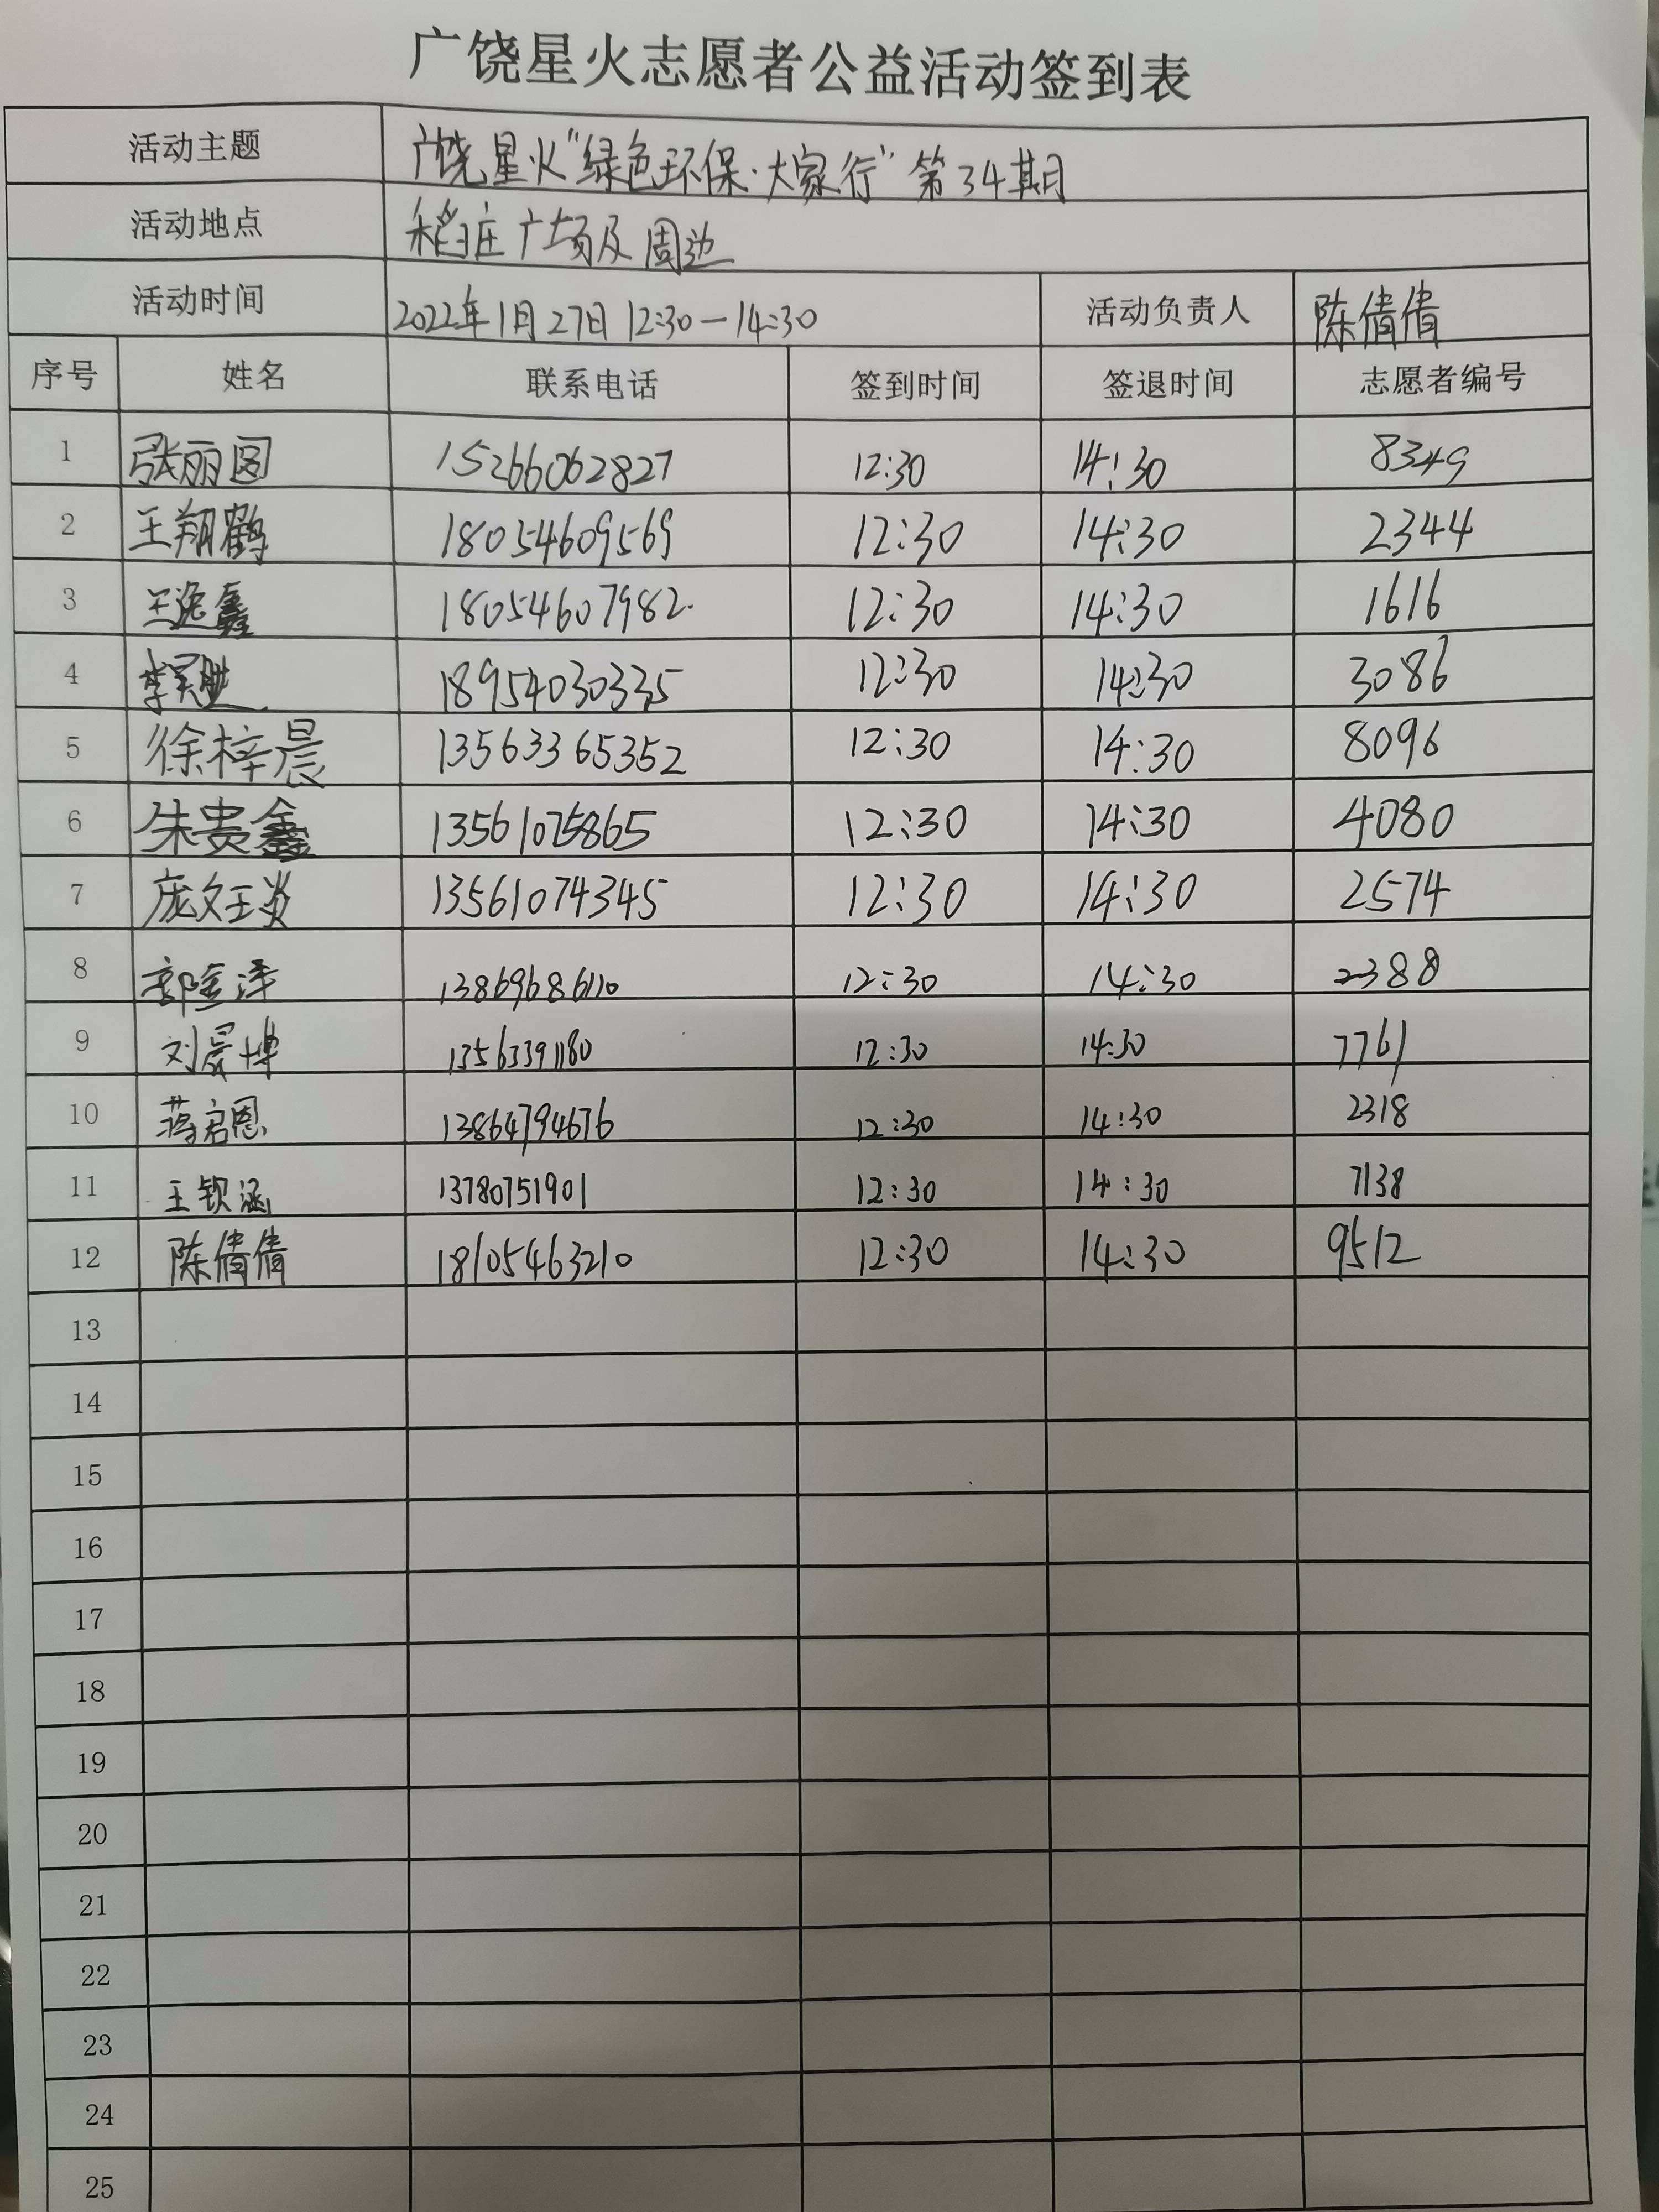 广饶星火志愿者公益活动签到表
活动主题 广饶星火"绿色环保·大家行"第34期
活动地点 稻庄广场及周边
活动时间 2022年1月27日 12:30—14:30 活动负责人 陈倩倩
序号 姓名 联系电话 签到时间 签退时间 志愿者编号
1 张丽圆 15266062827 12:30 14:30 8349
2 王翔鹤 18054609569 12:30 14:30 2344
3 王逸鑫 18054607982. 12:30 14:30 1616
4 李 18954030335 12:30 14:30 3086
5 徐梓晨 13563365352 12:30 14:30 8096
6 朱贵鑫 13561075865 12:30 14:30 4080
7 庞钰炎 13561074345 12:30 14:30 2574
8 郭金泽 13869686110 12:30 14:30 2388
9 刘晨博 13563391180 12:30 14:30 7761
10 蒋启恩 13864794676 12:30 14:30 2318
11 王钦涵 13780751901 12:30 14:30 7138
12 陈倩倩 18105463210 12:30 14:30 9512
13
14
15
16
17
18
19
20
21
22
23
24
25